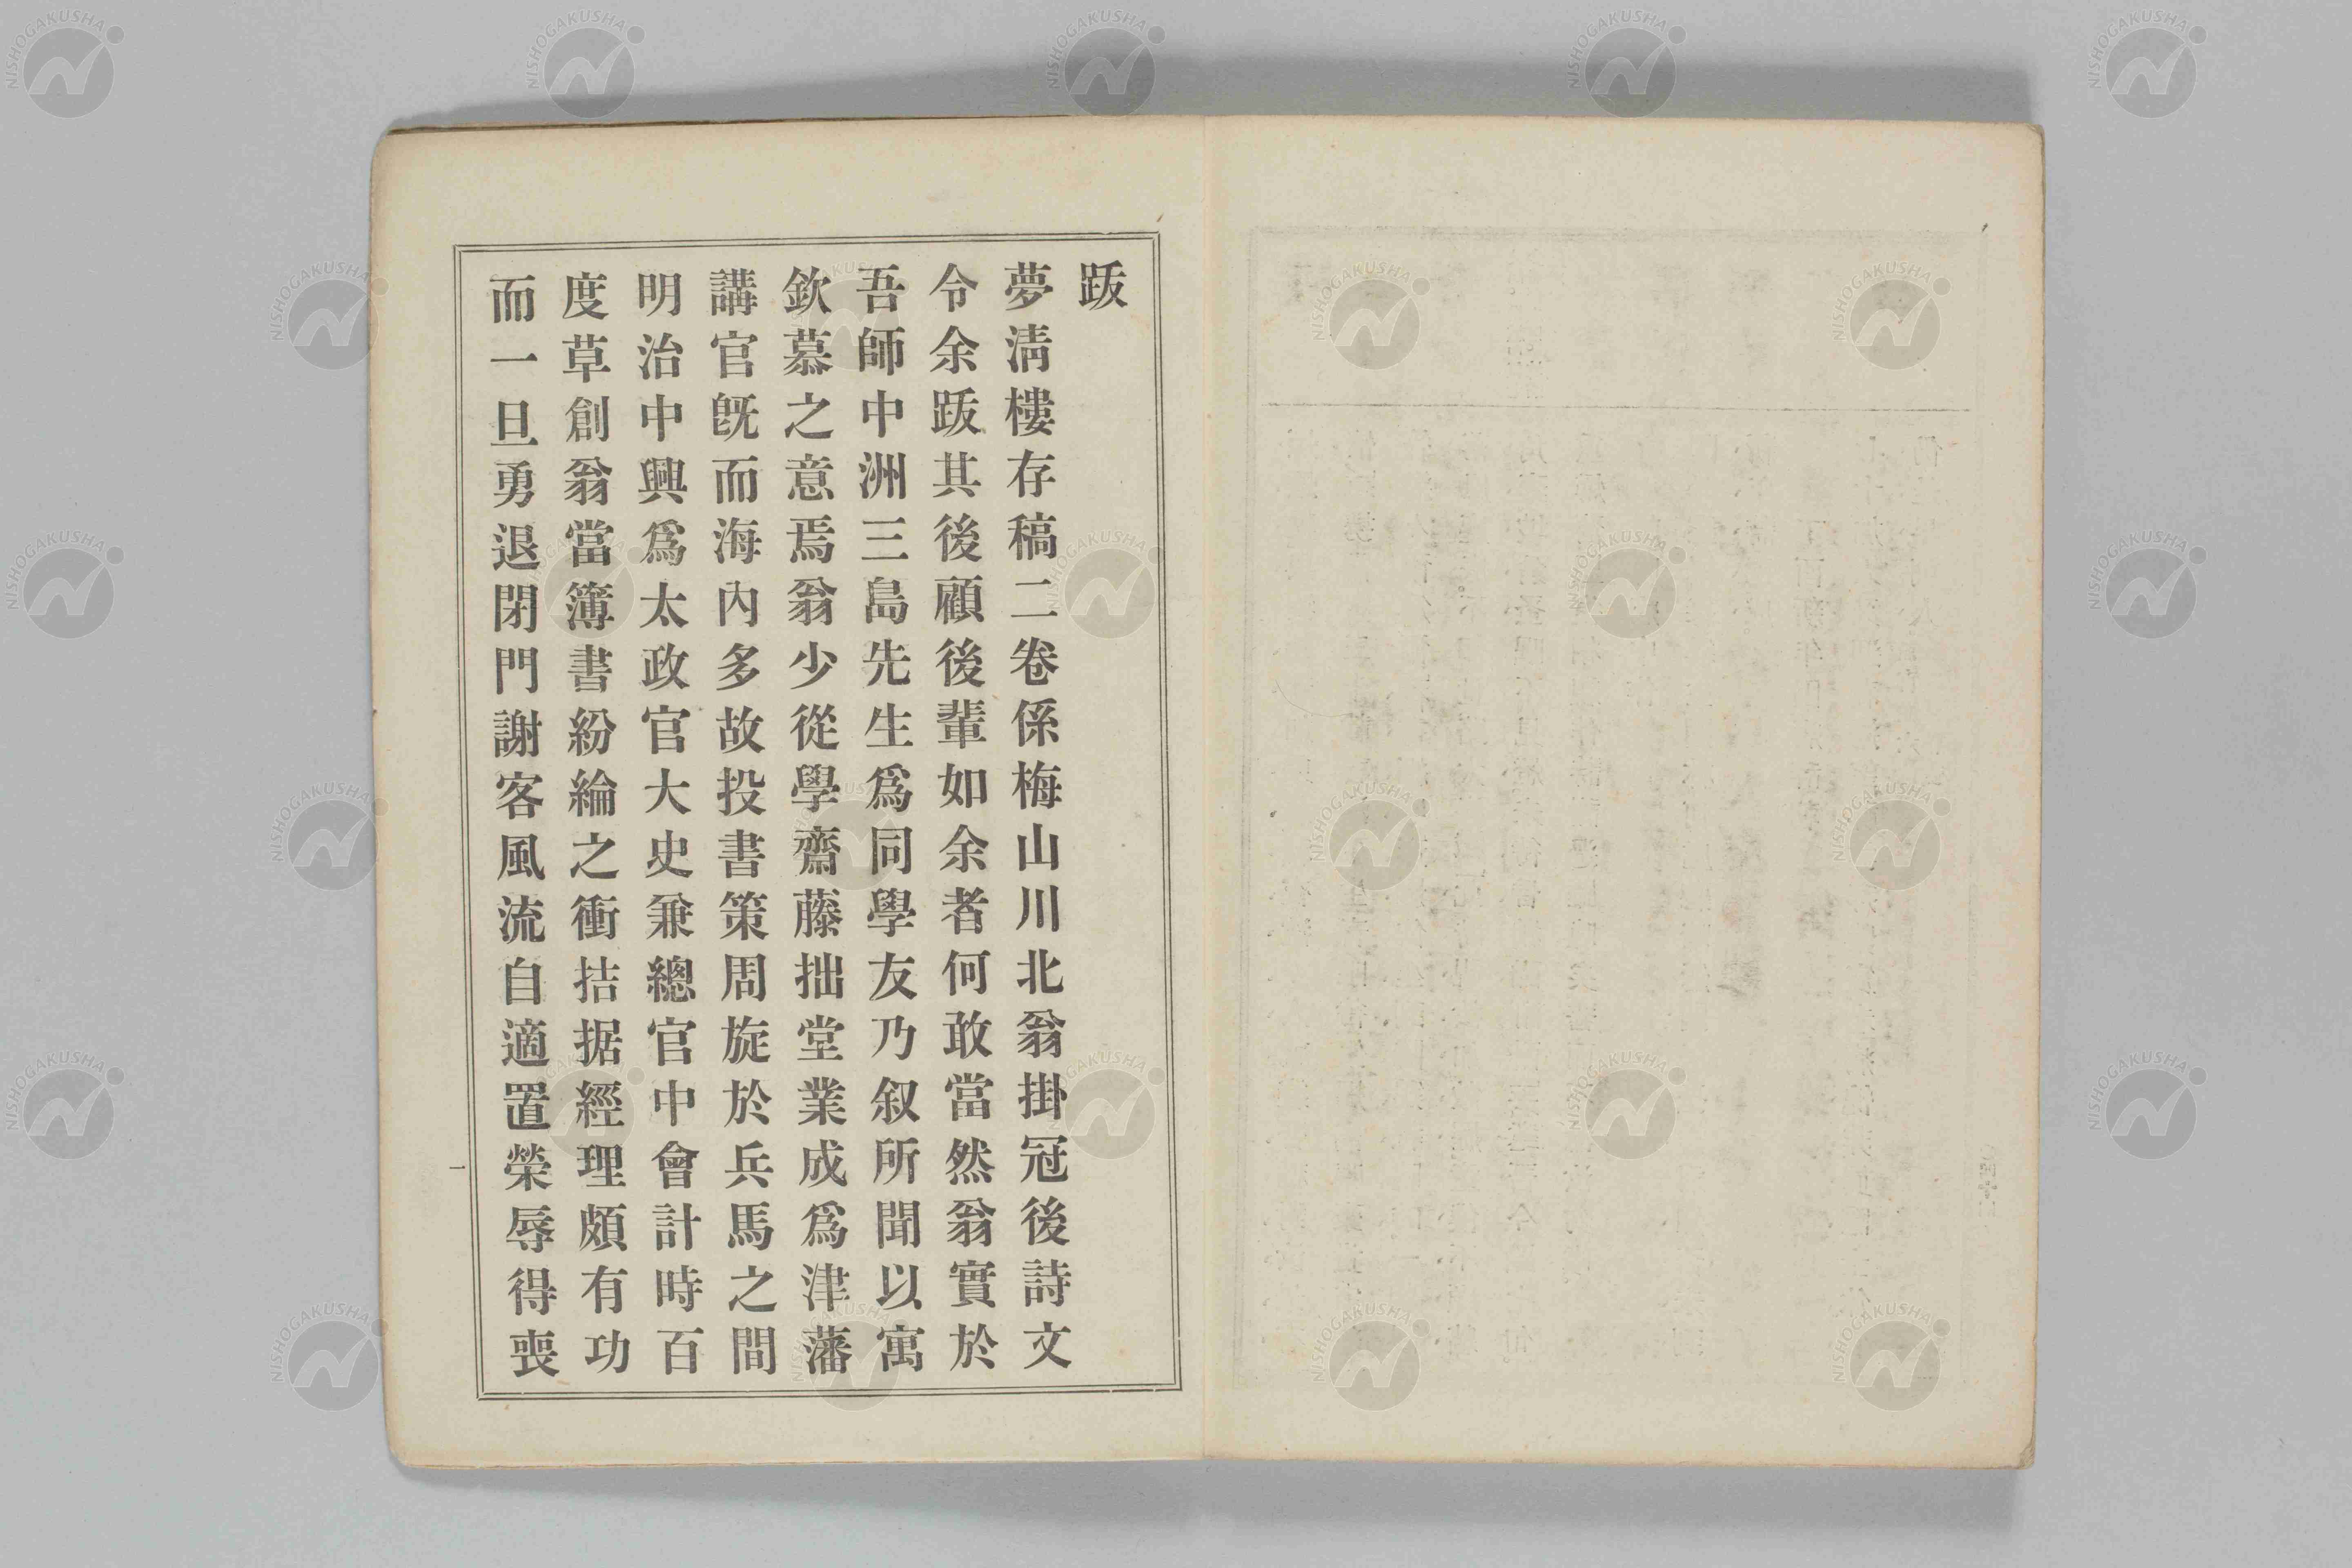 跋
夢淸樓存稿二卷係梅山川北翁掛冠後詩文
令余跋其後顧後輩如余者何敢當然翁實於
吾師中洲三島先生爲同學友乃叙所聞以寓
欽慕之意焉翁少從學齋藤拙堂業成爲津藩
講官旣而海內多故投書策周旋於兵馬之間
明治中興爲太政官大史兼總官中會計時百
度草創翁當簿書紛綸之衝拮据經理頗有功
而一旦勇退閉門謝客風流自適置榮辱得喪
一
NISHOGAKUSHA